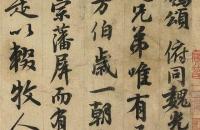 頌俯同魏光
兄弟唯有
方伯歲一朝
崇藩屏而有
是以輟牧人